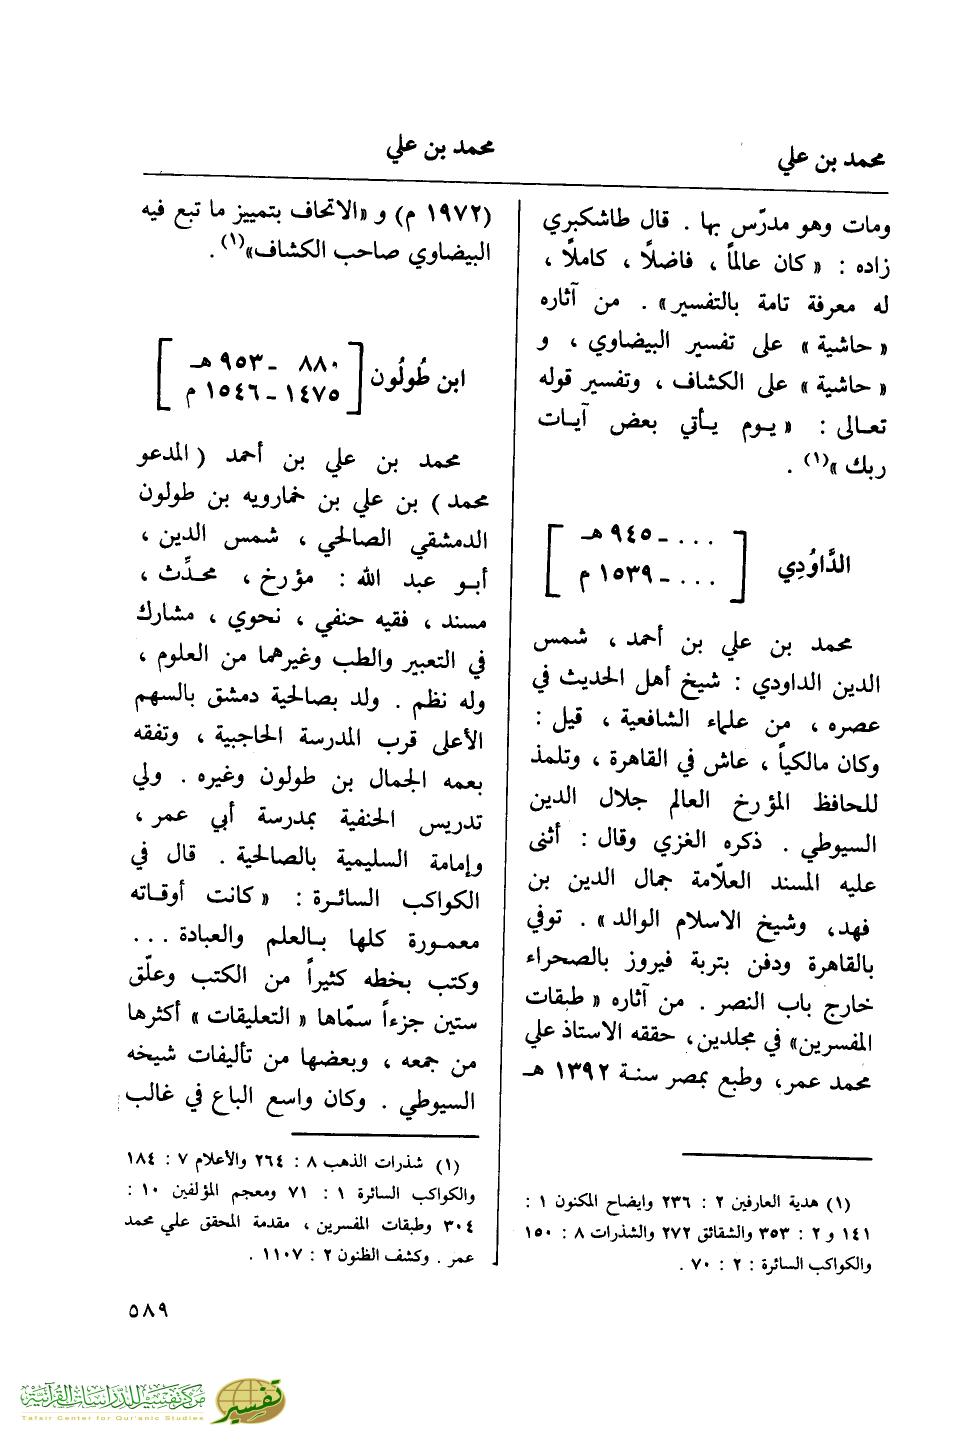 محمد بن علي
محمد بن علي
ومات وهو مدرّس بها . قال طاشكبري
زاده : « كان عالماً ، فاضلًا ، كاملًا ،
له معرفة تامة بالتفسير» . من آثاره
« حاشية » على تفسير البيضاوي ، و
« حاشية » على الكشاف ، وتفسير قوله
تعالى : « يوم يأتي بعض آيات
ربك »(١) .
الدَّاوُدِي
[ . . . ـ ٩٤٥ هـ
. . . ـ ١٥٣٩ م ]
محمد بن علي بن أحمد ، شمس
الدين الداودي : شيخ أهل الحديث في
عصره ، من علماء الشافعية ، قيل :
وكان مالكياً ، عاش في القاهرة ، وتلمذ
للحافظ المؤرخ العالم جلال الدين
السيوطي . ذكره الغزي وقال : أثنى
عليه المسند العلّامة جمال الدين بن
فهد، وشيخ الاسلام الوالد » . توفي
بالقاهرة ودفن بتربة فيروز بالصحراء
خارج باب النصر . من آثاره « طبقات
المفسرين» في مجلدين، حققه الاستاذ علي
محمد عمر، وطبع بمصر سنة ١٣٩٢ هـ
(١) هدية العارفين ٢ : ٢٣٦ وايضاح المكنون ١ :
١٤١ و ٢ : ٣٥٣ والشقائق ٢٧٢ والشذرات ٨ : ١٥٠
والكواكب السائرة : ٢ : ٧٠ .
(١٩٧٢ م) و «الاتحاف بتمييز ما تبع فيه
البيضاوي صاحب الكشاف»(١) .
ابن طُولُون
[ ٨٨٠ ـ ٩٥٣ هـ
١٤٧٥ ـ ١٥٤٦ م ]
محمد بن علي بن أحمد ( المدعو
محمد ) بن علي بن خمارويه بن طولون
الدمشقي الصالحي ، شمس الدين ،
أبو عبد الله : مؤرخ ، محدِّث ،
مسند ، فقيه حنفي ، نحوي ، مشارك
في التعبير والطب وغيرهما من العلوم ،
وله نظم . ولد بصالحية دمشق بالسهم
الأعلى قرب المدرسة الحاجبية ، وتفقه
بعمه الجمال بن طولون وغيره . ولي
تدريس الحنفية بمدرسة أبي عمر ،
وإمامة السليمية بالصالحية . قال في
الكواكب السائرة : « كانت أوقاته
معمورة كلها بالعلم والعبادة ...
وكتب بخطه كثيراً من الكتب وعلّق
ستين جزءاً سمّاها « التعليقات » أكثرها
من جمعه ، وبعضها من تأليفات شيخه
السيوطي . وكان واسع الباع في غالب
(١) شذرات الذهب ٨ : ٢٦٤ والأعلام ٧ : ١٨٤
والكواكب السائرة ١ : ٧١ ومعجم المؤلفين ١٠ :
٣٠٤ وطبقات المفسرين ، مقدمة المحقق علي محمد
عمر . وكشف الظنون ٢ : ١١٠٧ .
٥٨٩
مركز تفسير للدراسات القرآنية
Tafsir Center for Qur'anic Studies
تفسير